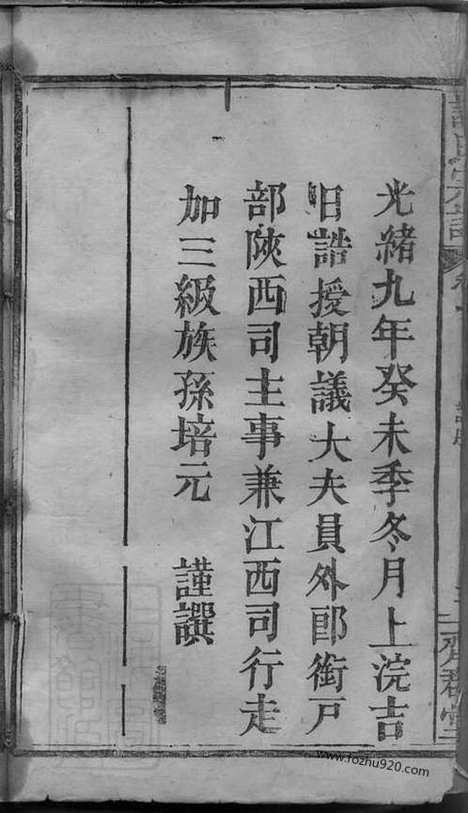 光緒九年癸未季冬月上浣吉
旦誥授朝議大夫員外郎銜戶
部陝西司主事兼江西司行走
加三級族孫培元　謹譔
www.fozhu920.com